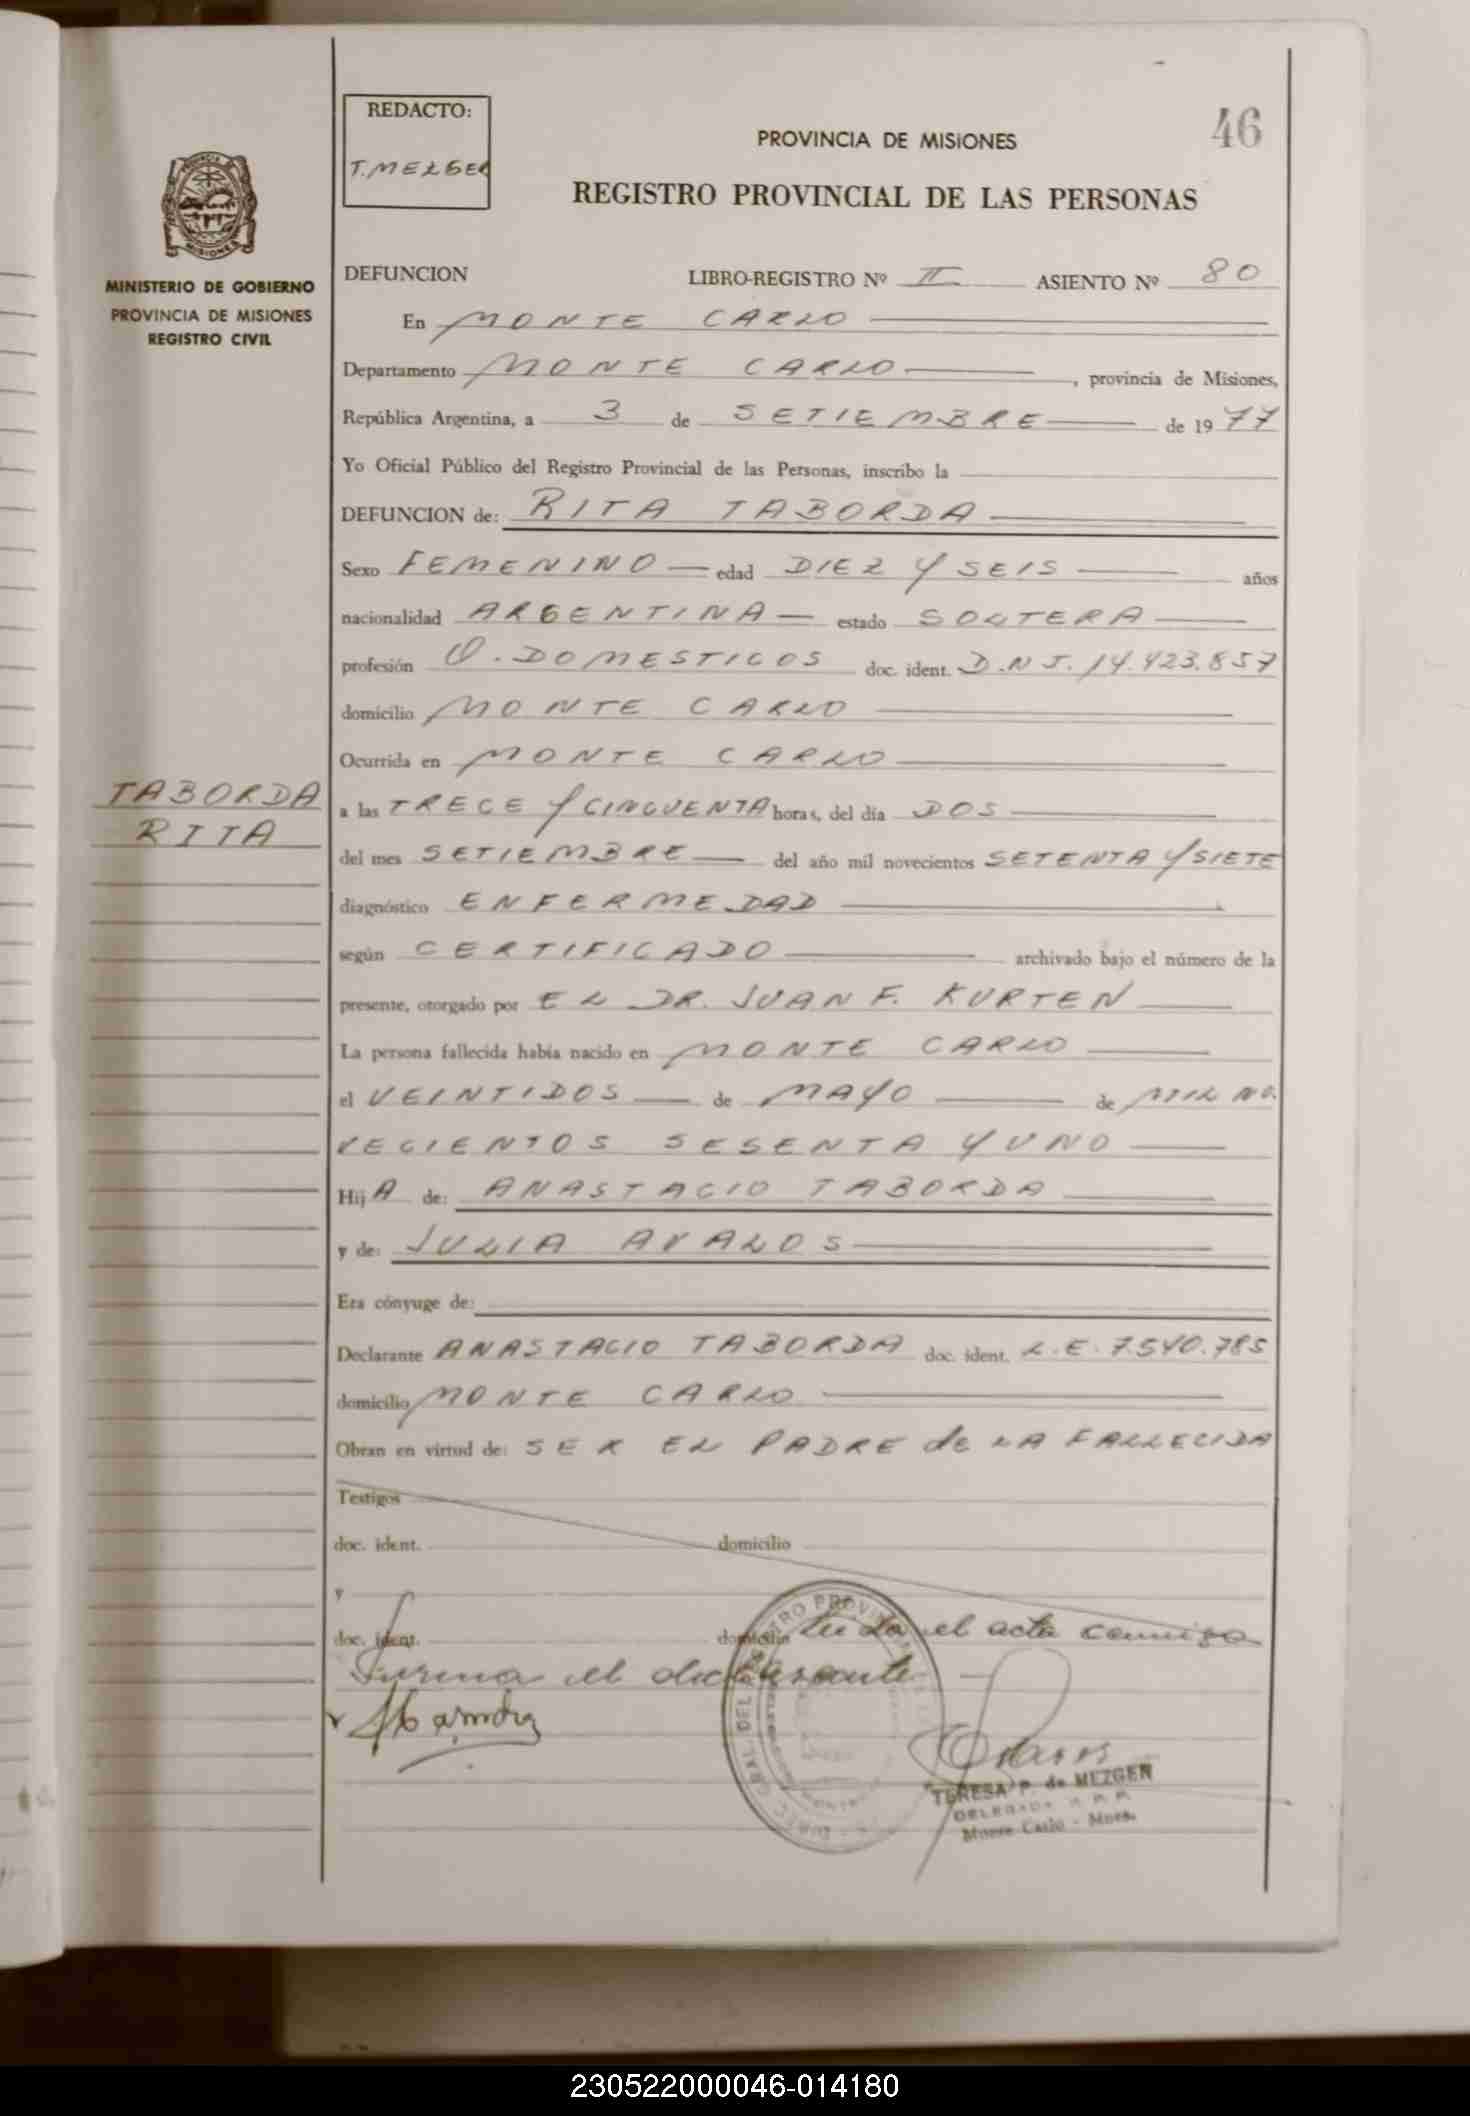 46
REDACTO:
T. MEZGER
PROVINCIA DE MISIONES
REGISTRO PROVINCIAL DE LAS PERSONAS
MINISTERIO DE GOBIERNO
PROVINCIA DE MISIONES
REGISTRO CIVIL
DEFUNCION LIBRO-REGISTRO Nº II ASIENTO Nº 80
En MONTE CARLO
Departamento MONTE CARLO, provincia de Misiones,
República Argentina, a 3 de SETIEMBRE de 1977
Yo Oficial Público del Registro Provincial de las Personas, inscribo la
DEFUNCION de: RITA TABORDA
Sexo FEMENINO edad DIEZ Y SEIS años
nacionalidad ARGENTINA estado SOLTERA
profesión Q. DOMESTICOS doc. ident. D.N.I. 14.423.857
domicilio MONTE CARLO
Ocurrida en MONTE CARLO
TABORDA
RITA
a las TRECE Y CINCUENTA horas, del día DOS
del mes SETIEMBRE del año mil novecientos SETENTA Y SIETE
diagnóstico ENFERMEDAD
según CERTIFICADO archivado bajo el número de la
presente, otorgado por EL DR. JUAN F. KURTEN
La persona fallecida había nacido en MONTE CARLO
el VEINTIDOS de MAYO de MIL NO.
VECIENTOS SESENTA Y UNO
HijA de: ANASTACIO TABORDA
y de: JULIA AVALOS
Era cónyuge de:
Declarante ANASTACIO TABORDA doc. ident. L.E. 7.540.785
domicilio MONTE CARLO
Obran en virtud de: SER EL PADRE de LA FALLECIDA
Testigos
doc. ident. domicilio
y
doc. ident. domicilio Leida el acta conmigo
Firma el declarante
TERESA P. de MEZGER
DELEGADA R. P. P.
Monte Carlo - Mnes.
230522000046-014180